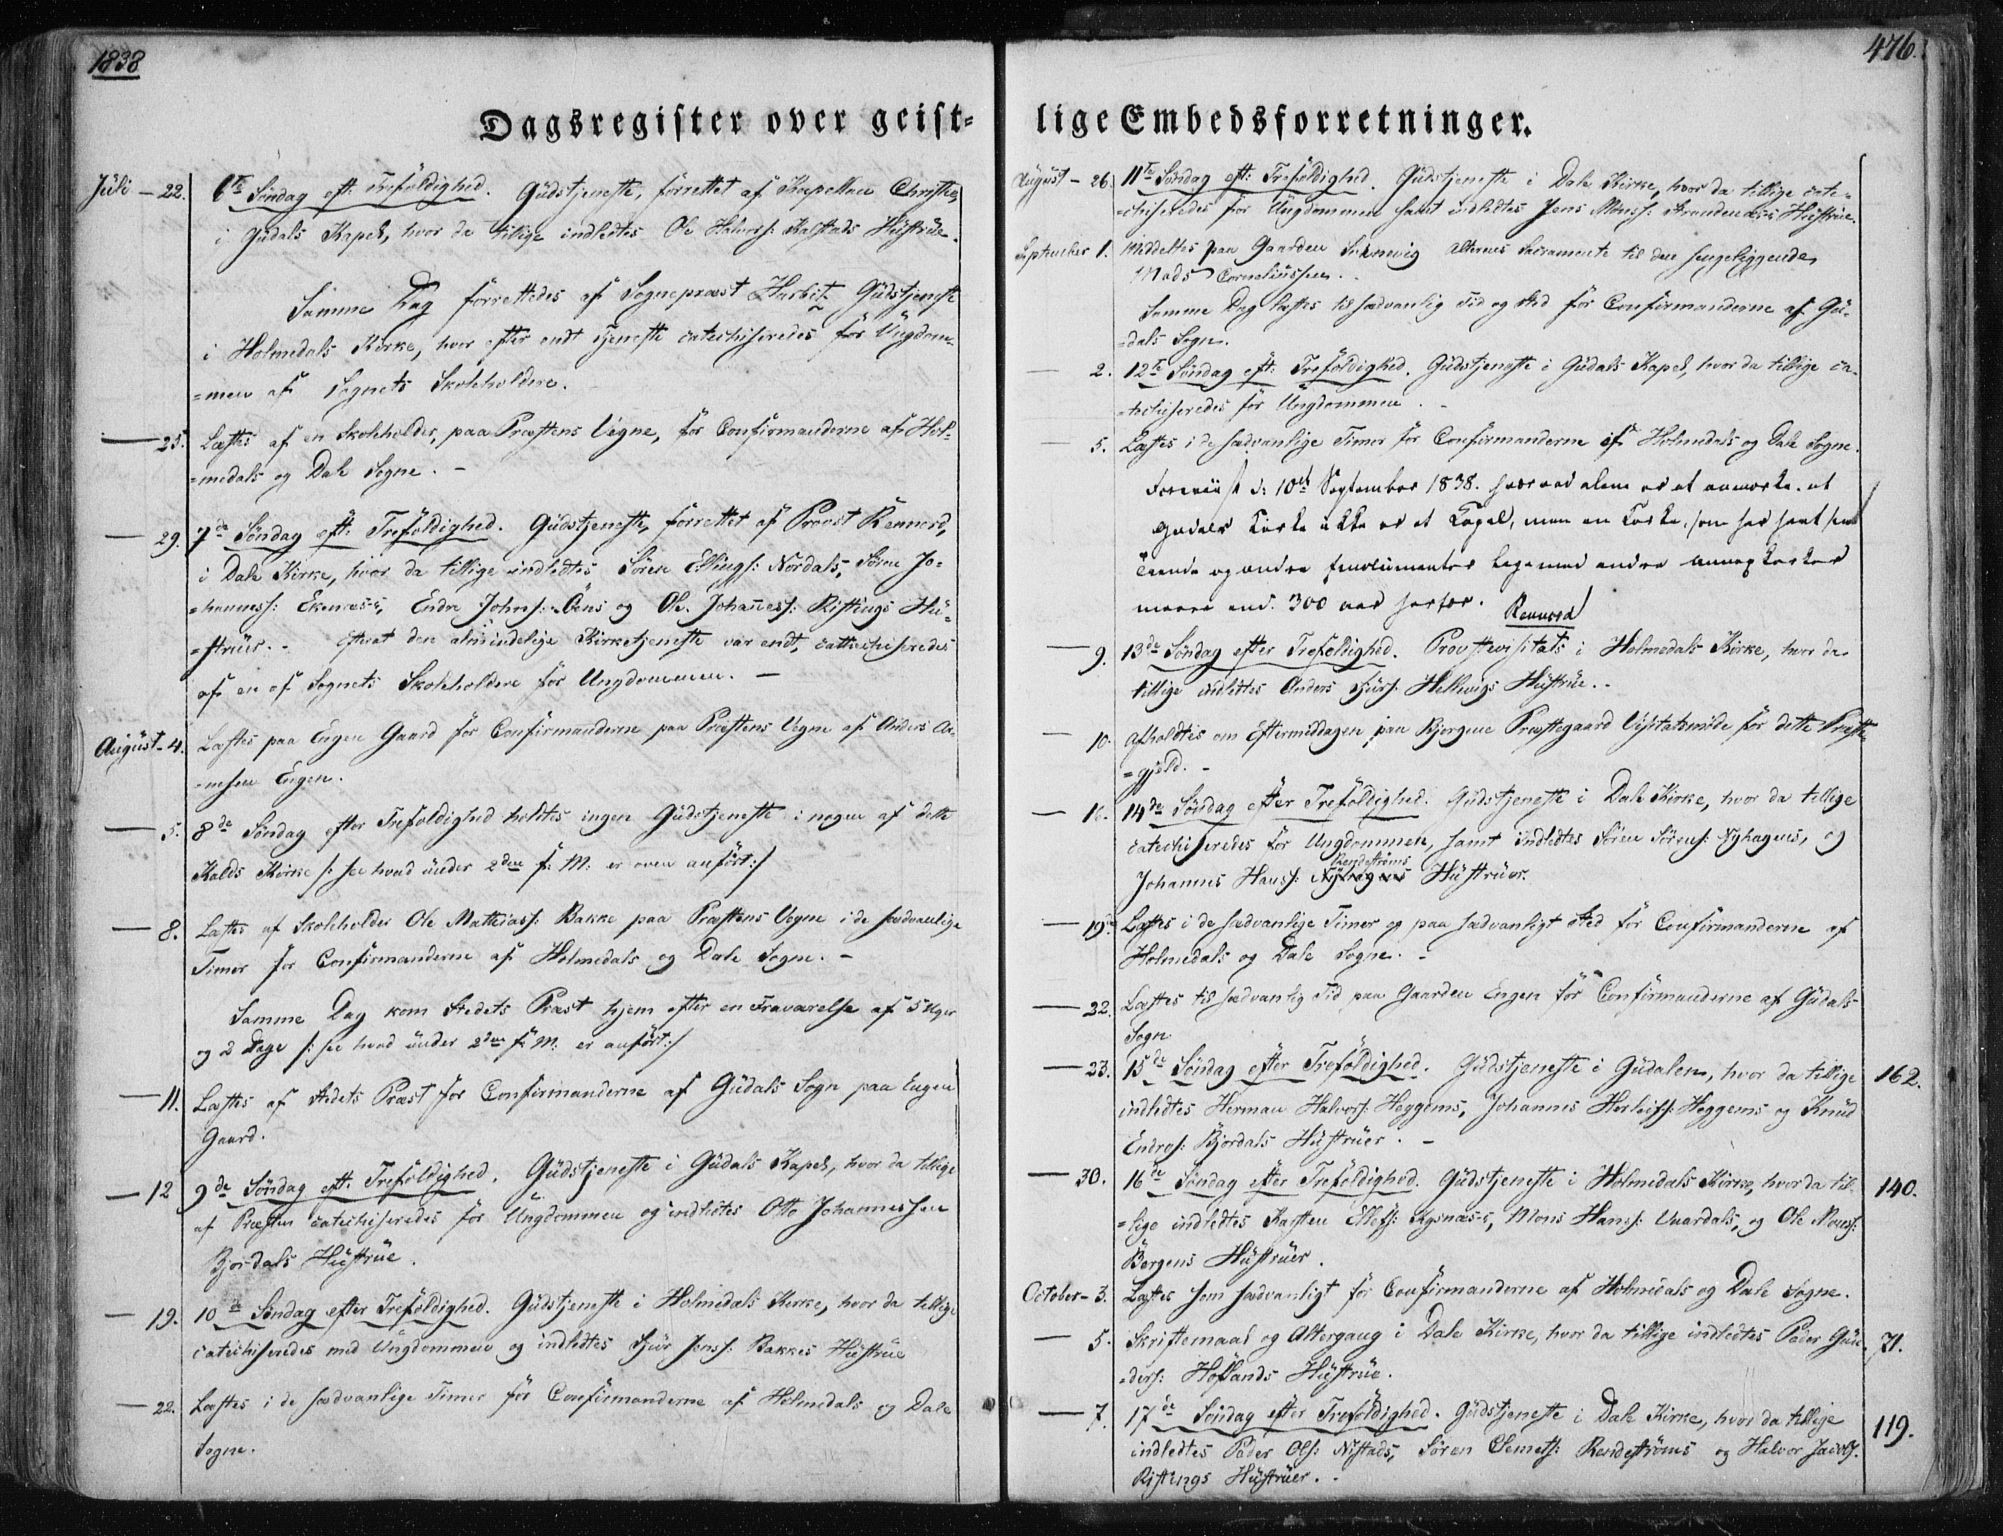 1838
Dagsregister over geist-
Juli - 22. 6te Søndag eft: Trefoldighed. Gudstjeneste, forrettet af Kapellan Christie,
i Gudals Kapel, hvor da tillige indledtes Ole Halvors: Kalstads Hustrue.
Samme Dag forrettedes af Sognepræst Harbitz Gudstjeneste
i Holmedals Kirke, hvor efter endt Tjeneste catechiseredes for Ungdom-
=men af Sognets Skoleholdere.
— 25. Læstes af en Skoleholder, paa Præstens Vegne, for Confirmanderne af Hol-
=medals og Dale Sogne. -
— 29. 7de Søndag eft: Trefoldighed. Gudstjeneste, forrettet af Provst Rennord,
i Dale Kirke, hvor da tillige indledtes Søren Ellings: Nordals, Søren Jo-
=hanness: Ekenæss's, Endre Johns: Øens og Ole Johanness: Ristings Hu-
=struer. - Efterat den almindelige Kirketjeneste var endt, cattechiseredes
af en af Sognets Skoleholdere for Ungdommen. -
August - 4. Læstes paa Engen Gaard for Confirmanderne paa Præstens Vegne af Anders Ar-
=nesen Engen.
— 5. 8de Søndag efter Trefoldighed holdtes ingen Gudstjeneste i nogen af dette
Kalds Kirke /: see hvad under 2den f: M: er oven anført:/
— 8. Læstes af Skoleholder Ole Mathiass: Bakke paa Præstens Vegne i de sædvanlige
Timer for Confirmanderne af Holmedals og Dale Sogne. -
Samme Dag kom Stedets Præst hjem efter en Fraværelse af 5 Uger
og 2 Dage /: see hvad under 2den f: M: er anført:/
— 11. Læstes af Stedets Præst for Confirmanderne af Gudals Sogn paa Engen
Gaard.
— 12 9de Søndag eft. Trefoldighed. Gudstjeneste i Gudals Kapel, hvor da tillige
af Præsten catechiseredes for Ungdommen og indledtes Otto Johannessen
Bjordals Hustrue.
— 19. 10de Søndag efter Trefoldighed. Gudstjeneste i Holmedals Kirke, hvor da tillige
catechiseredes med Ungdommen og indledtes Sjur Jens: Bakkes Hustrue
— 22. Læstes i de sædvanlige Timer for Confirmanderne af Holmedals og Dale
Sogne.
476.
lige Embedsforretninger.
August - 26. 11te Søndag eft: Trefoldighed. Gudstjeneste i Dale Kirke, hvor da tillige cate-
=chiseredes for Ungdommen samt indledtes Jens Monss: Strandenæss Hustrue.
September 1. Meddeltes paa Gaarden Alterens Sacramente til den sengeliggende
Mads Corneliussen.
Samme Dag læstes til sædvanlig Tid og Sted for Confirmanderne af Gu-
=dals Sogn.
— 2. 12te Søndag eft: Trefoldighed. Gudstjeneste i Gudals Kapel, hvor da tillige ca-
=techiseredes for Ungdommen. -
— 5. Læstes i de sædvanlige Timer for Confirmanderne af Holmedals og Dale Sogne.
Foreviist d: 10de September 1838. hvorved alene er at anmærke, at
Gudals Kirke ikke er et Capel, men en Kirke, som har havt sin
Tiende og andre Emolumenter lige med andre Annexkirker
meere end 300 aar herfør. Rennord
— 9. 13de Søndag efter Trefoldighed. Provstevisitats i Holmedals Kirke, hvor da
tillige indledtes Anders Sjurs: Hellevigs Hustrue. -
— 10. Afholdtes om Eftermiddagen paa Bjergene Præstegaard Visitatsmøde for dette Præste-
=gjeld. -
— 16. 14de Søndag efter Trefoldighed. Gudstjeneste i Dale Kirke, hvor da tillige
catechiseredes for Ungdommen, samt indledtes Søren Sørens: Nyhagens, og
Rendestrøms
Johannes Hanss: Nyhagens Hustruer.
— 19de Læstes i de sædvanlige Timer og paa sædvanligt Sted for Confirmanderne af
Holmedals og Dale Sogne. -
— 22. Læstes til sædvanlig Tid paa Gaarden Engen for Confirmanderne af Gudals-
Sogn
— 23. 15de Søndag efter Trefoldighed. Gudstjeneste i Gudalen, hvor da tillige 162.
indledtes Herman Halvors: Heggems, Johannes Herleifs: Heggems og Knud
Endres: Bjordals Hustruer. -
— 30. 16de Søndag efter Trefoldighed. Gudstjeneste i Holmedals Kirke, hvor da til- 140.
=lige indledtes Karsten Ellefs: Kysnæss's, Mons Hanss: Vaardals, og Ole Monss:
Børgens Hustruer.
October - 3. Læstes som sædvanligt for Confirmanderne af Holmedals og Dale Sogne.
— 5. Skriftemaal og Altergang i Dale Kirke, hvor da tillige indledtes Peder Gun- 71.
=ders: Hoflands Hustrue.
— 7. 17de Søndag efter Trefoldighed. Gudstjeneste i Dale Kirke, hvor da tillige 119.
indledtes Peder Ols: Nistads, Søren Clemets: Rendestrøms og Halvor Jacobs:
Ristings Hustruer. -